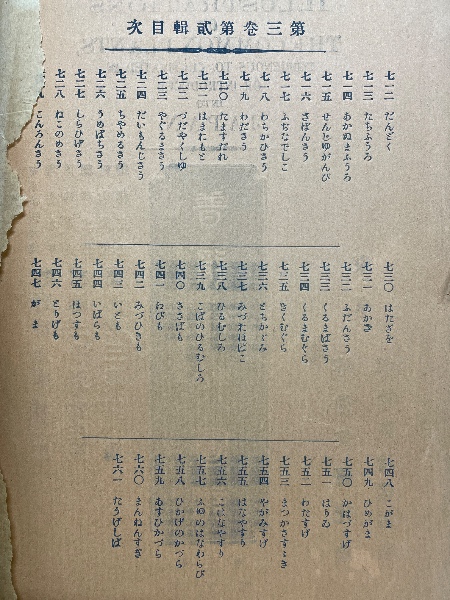 第三卷第貳輯目次
七一二 だんどく
七一三 たちふうろ
七一四 あかぬまふうろ
七一五 せんとゆがんぴ
七一六 さぼんさう
七一七 ふぢなでしこ
七一八 わちがひさう
七一九 わださう
七二〇 たますだれ
七二一 はまおもと
七二二 づだやくしゆ
七二三 やぐるまさう
七二四 だいもんじさう
七二五 ちやめるさう
七二六 うめばちさう
七二七 しらひげさう
七二八 ねこのめさう
こんろんさう
七三〇 はたざを
七三一 あかざ
七三二 ふだんさう
七三三 くるまばさう
七三四 くるまむぐら
七三五 きくむぐら
七三六 とちかゞみ
七三七
七三八 ひるむしろ
七三九 こばのひるむしろ
七四〇 ささばも
七四一 ねびも
七四二 みづひきも
七四三 いとも
七四四 いばらも
七四五 ほつすも
七四六 とりげも
七四七 がま
七四八 こがま
七四九 ひめがま
七五〇 かはづすげ
七五一 はりゐ
七五二 わたすげ
七五三 まつかさすゝき
七五四 やがみすげ
七五五 はなやすり
七五六 こはなやすり
七五七 ふゆのはなわらび
七五八 ひかげのかづら
七五九 あすひかづら
七六〇 まんねんすぎ
七六一 たうげしば